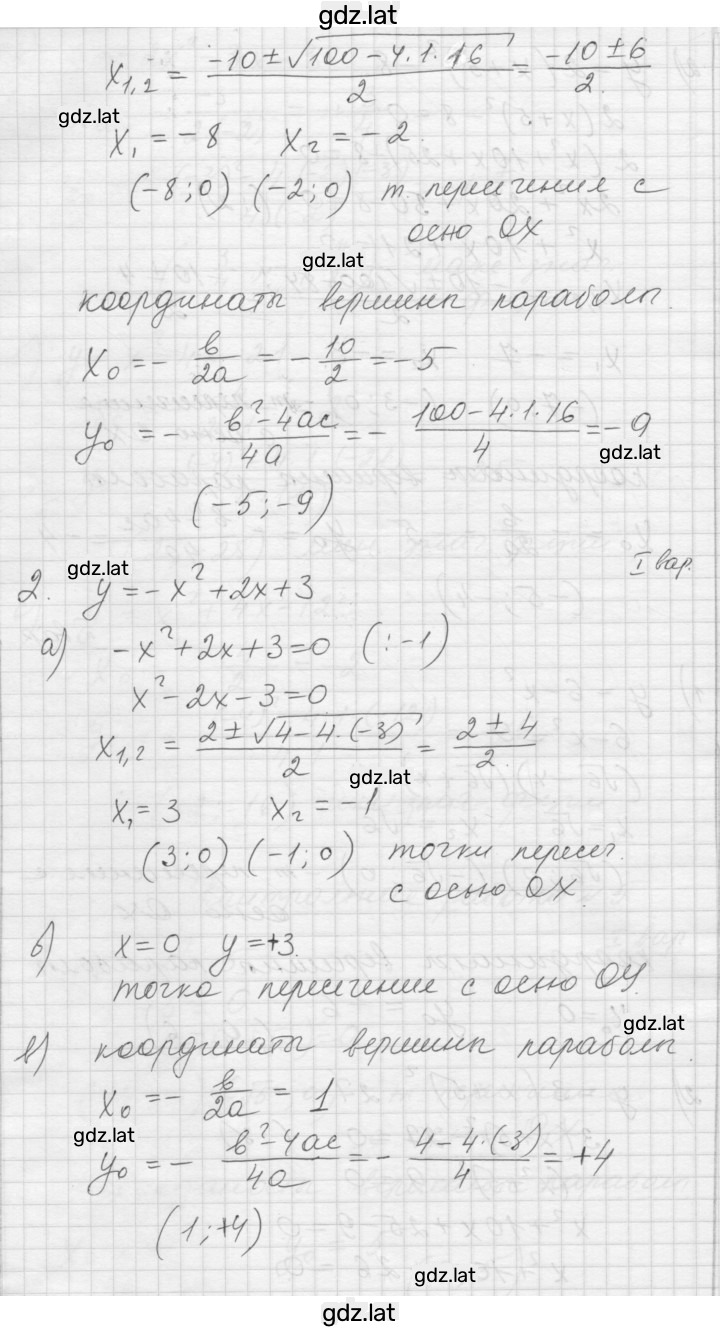 gdz.lat
x₁,₂ = (-10 ± √(100 - 4·1·16)) / 2 = (-10 ± 6) / 2.
gdz.lat
x₁ = -8   x₂ = -2.
(-8; 0) (-2; 0) т. пересечения с
осью OX
gdz.lat
координаты вершины параболы.
x₀ = - в/2a = - 10/2 = -5
y₀ = - (в² - 4ac)/4a = - (100 - 4·1·16)/4 = -9
gdz.lat
(-5; -9)
I вар.
gdz.lat
2. y = -x² + 2x + 3
а) -x² + 2x + 3 = 0 (: -1)
x² - 2x - 3 = 0
x₁,₂ = (2 ± √(4 - 4·(-3))) / 2 = (2 ± 4) / 2.
gdz.lat
x₁ = 3   x₂ = -1
(3; 0) (-1; 0) точки пересеч.
с осью OX.
б) x = 0 y = +3.
точка пересечение с осью OY.
gdz.lat
в) координаты вершины параболы.
x₀ = - в/2a = 1
gdz.lat
y₀ = - (в² - 4ac)/4a = - (4 - 4·(-3))/4 = +4
(1; +4)
gdz.lat
gdz.lat